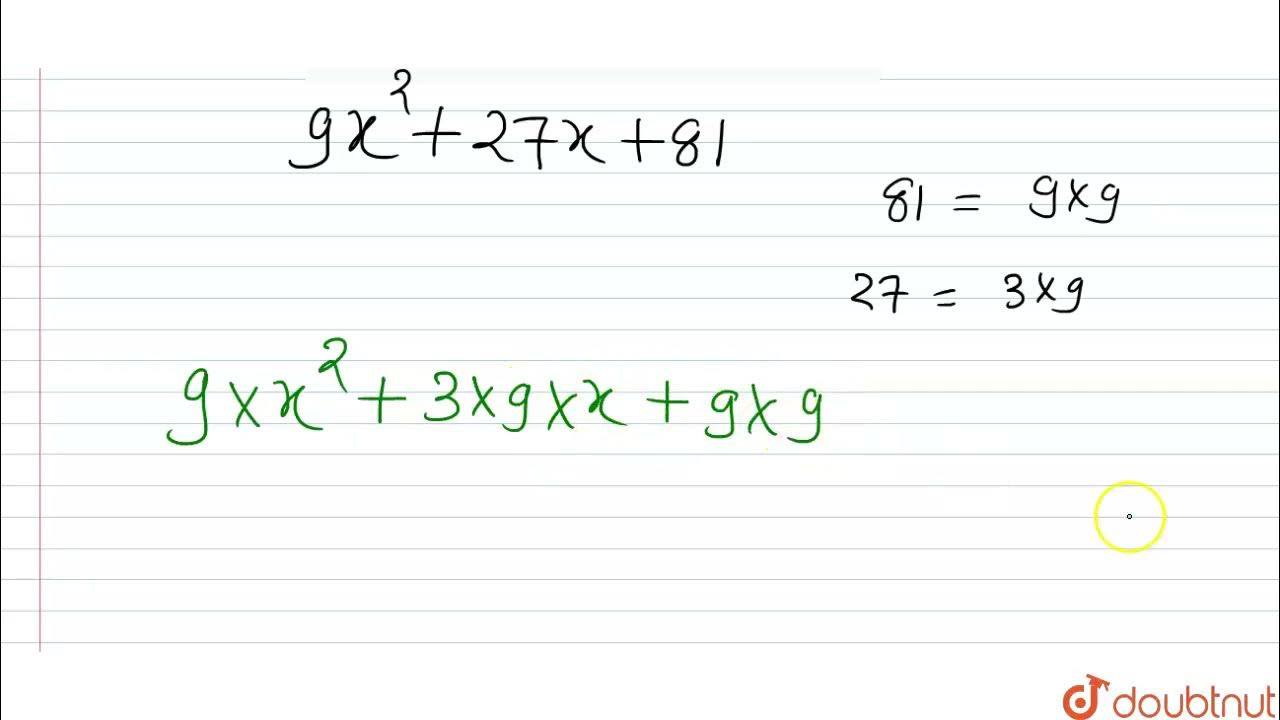 9x² + 27x + 81
81 = 9x9
27 = 3x9
9xx² + 3x9xx + 9x9
doubtnut